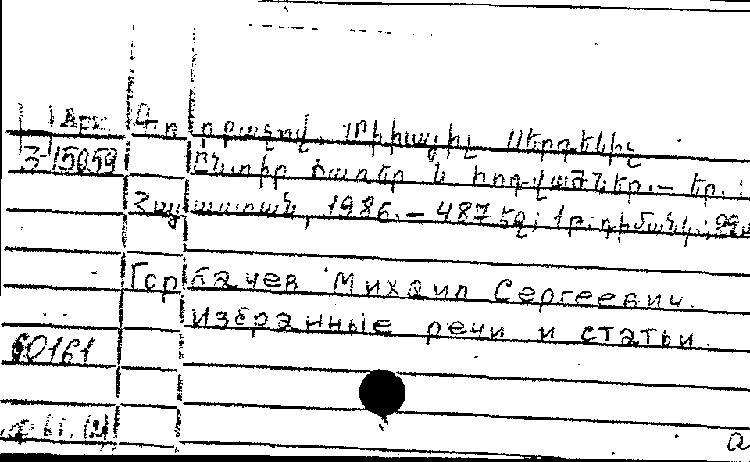 Арх. Գորբաչով, Միխայիլ Սերգեևիչ
3-15059 Ընտիր ճառեր և հոդվածներ.— Եր.:
Հայաստան, 1986.— 487 էջ; 1 թ. դիմանկ.;
Горбачев Михаил Сергеевич.
Избранные речи и статьи.
60161
а